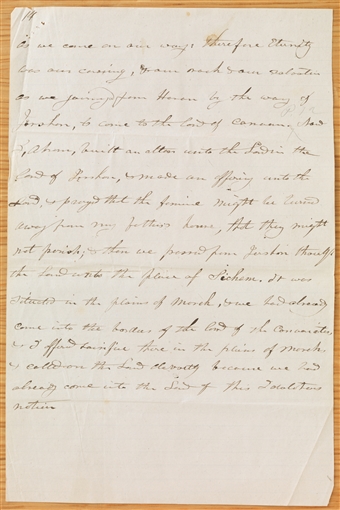 14
as we came on our way: therefore Eternity
was our covering, & our rock & our salvation
as we journeyed from Haran by the way of
Jurshon, to come to the land of Canaan. Now
I, Abram, built an altar unto the Lord in the
land of Jurshon, & made an offering unto the
Lord, & prayed that the famine might be turned
away from my fathers house, that they might
not perish; & then we passed from Jurshon through
the land unto the place of Sichem. It was
situated in the plains of Moreh, & we had already
come into the borders of the land of the Canaanites,
& I offered sacrifice there in the plains of Moreh,
& called on the Lord devoutly because we had
already come into the land of this Idolatrous
nation